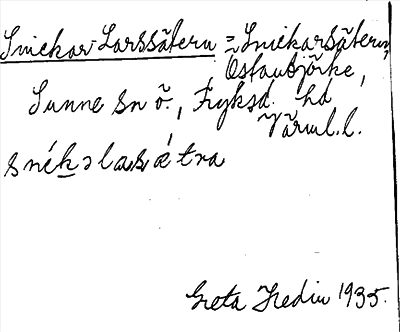 Snickar-Larssätern = Snickarsätern,
Östanbjörke,
Sunne sn ö., Fryksd. hd
Värml.l.
snékəlasǽtra
Greta Hedin 1935.